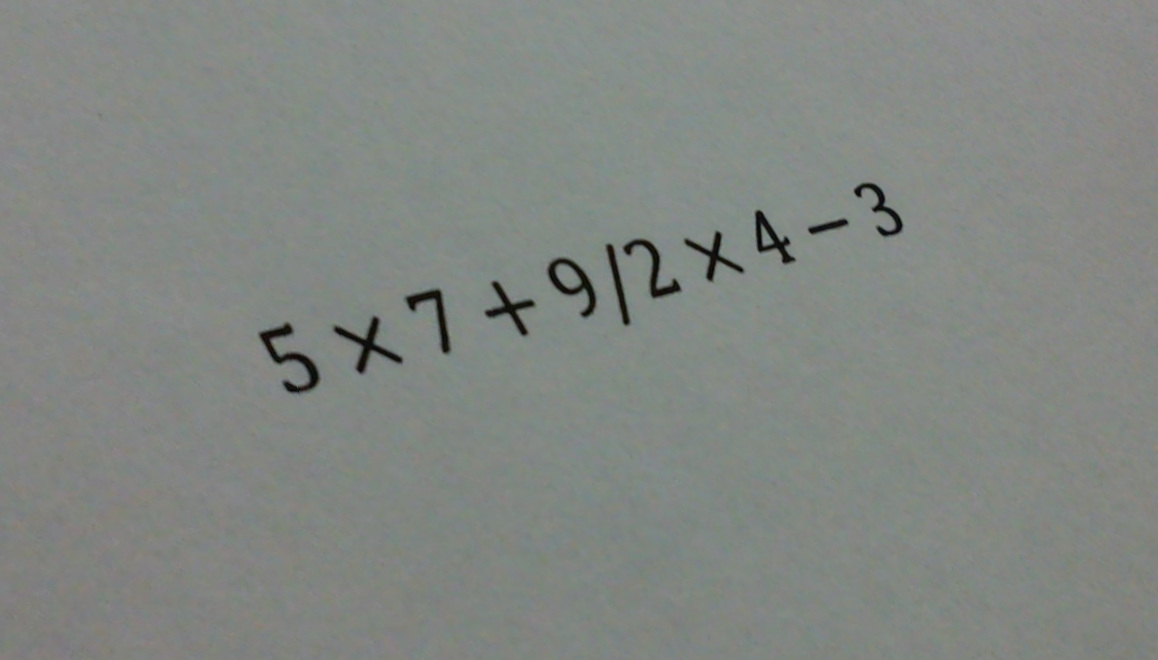 5×7+9/2×4-3